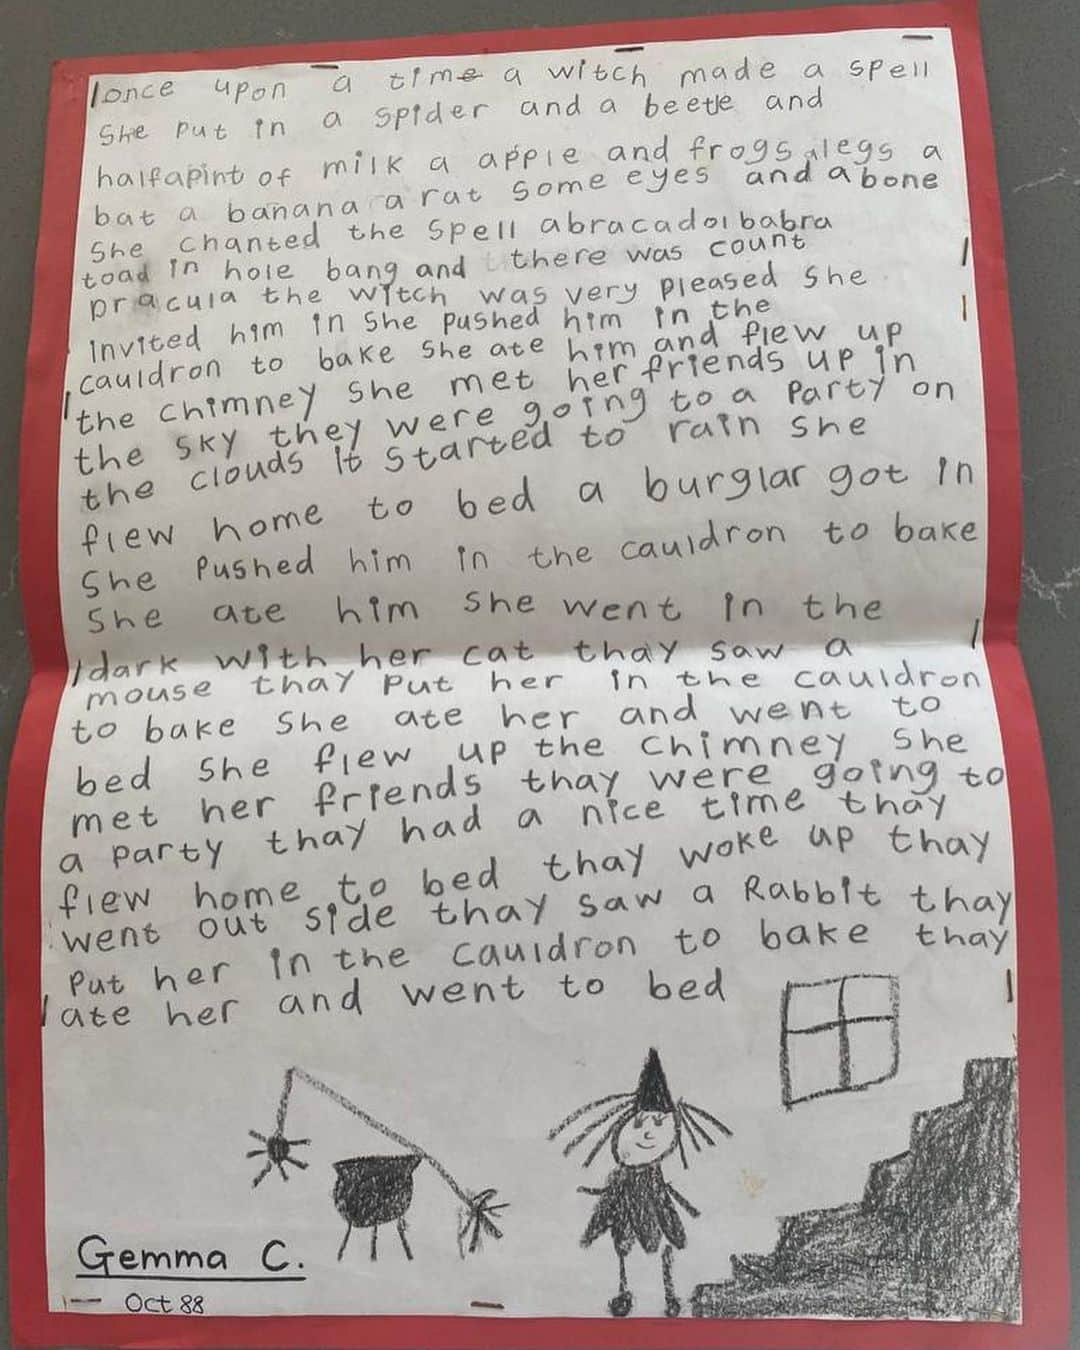 once upon a time a witch made a spell
She put in a spider and a beetle and
halfapint of milk a apple and frogs legs a
bat a banana a rat some eyes and a bone
She chanted the spell abracadoibabra
toad in hole bang and there was count
pracula the witch was very pleased she
invited him in She pushed him in the
cauldron to bake She ate him and flew up
the chimney She met her friends up in
the sky they were going to a party on
the clouds it started to rain She
flew home to bed a burglar got in
She pushed him in the cauldron to bake
She ate him She went in the
dark with her cat thay saw a
mouse thay put her in the cauldron
to bake She ate her and went to
bed She flew up the chimney She
met her friends thay were going to
a party thay had a nice time thay
flew home to bed thay woke up thay
went out side thay saw a Rabbit thay
put her in the cauldron to bake thay
ate her and went to bed
Gemma C.
Oct 88